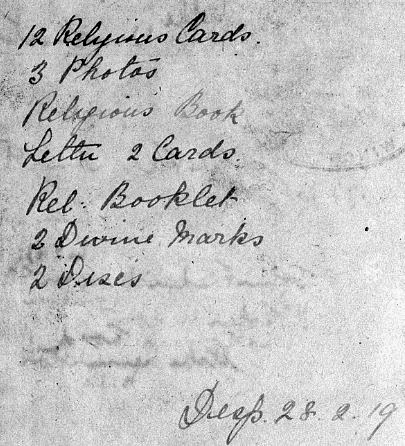 12 Religious Cards.
3 Photos
Religious Book
Letter 2 Cards.
Rel. Booklet
2 Divine Marks
2 Discs
Desp. 28. 2. 19